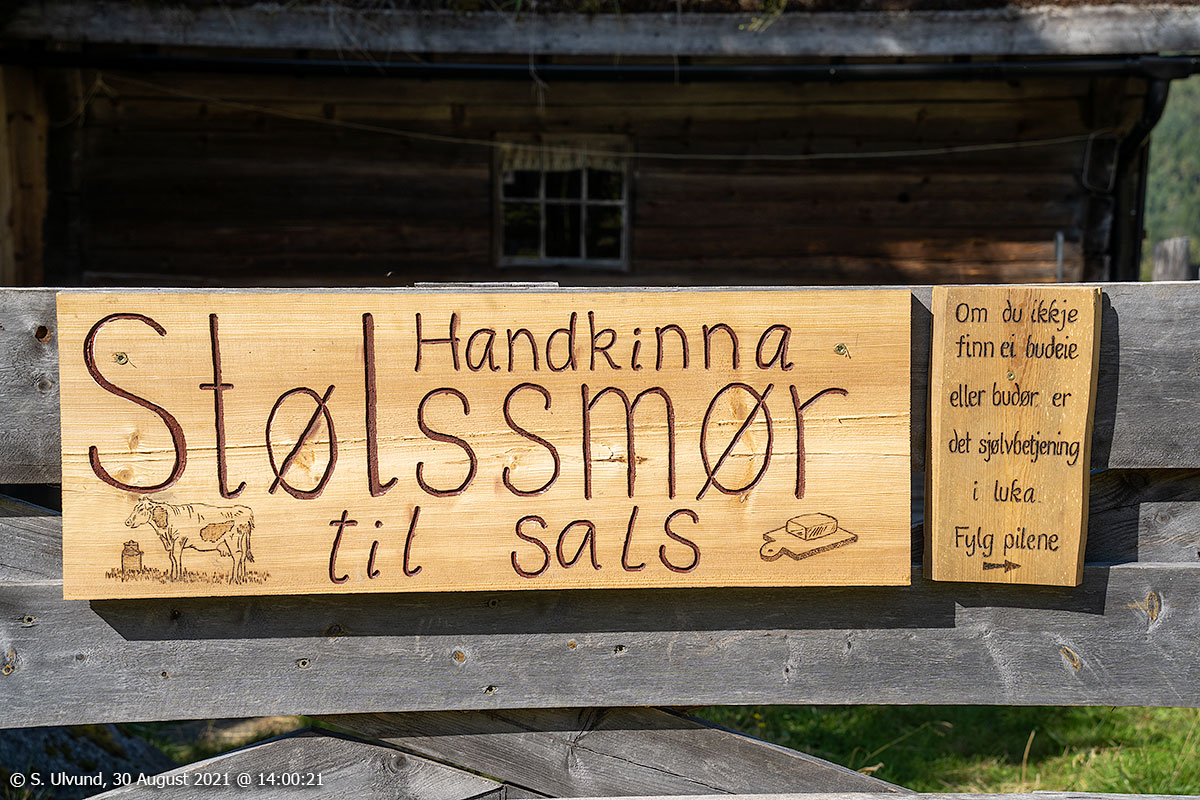 Handkinna
Stølssmør
til sals
Om du ikkje
finn ei budeie
eller budør er
det sjølvbetjening
i luka.
Fylg pilene
© S. Ulvund, 30 August 2021 @ 14:00:21